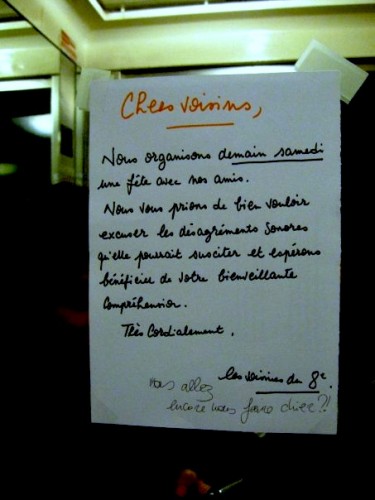 Chers voisins,
Nous organisons demain samedi
une fête avec nos amis.
Nous vous prions de bien vouloir
excuser les désagréments sonores
qu'elle pourrait susciter et espérons
bénéficier de votre bienveillante
compréhension.
Très Cordialement.
les voisines du 8e.
vous allez
encore nous faire chier?!